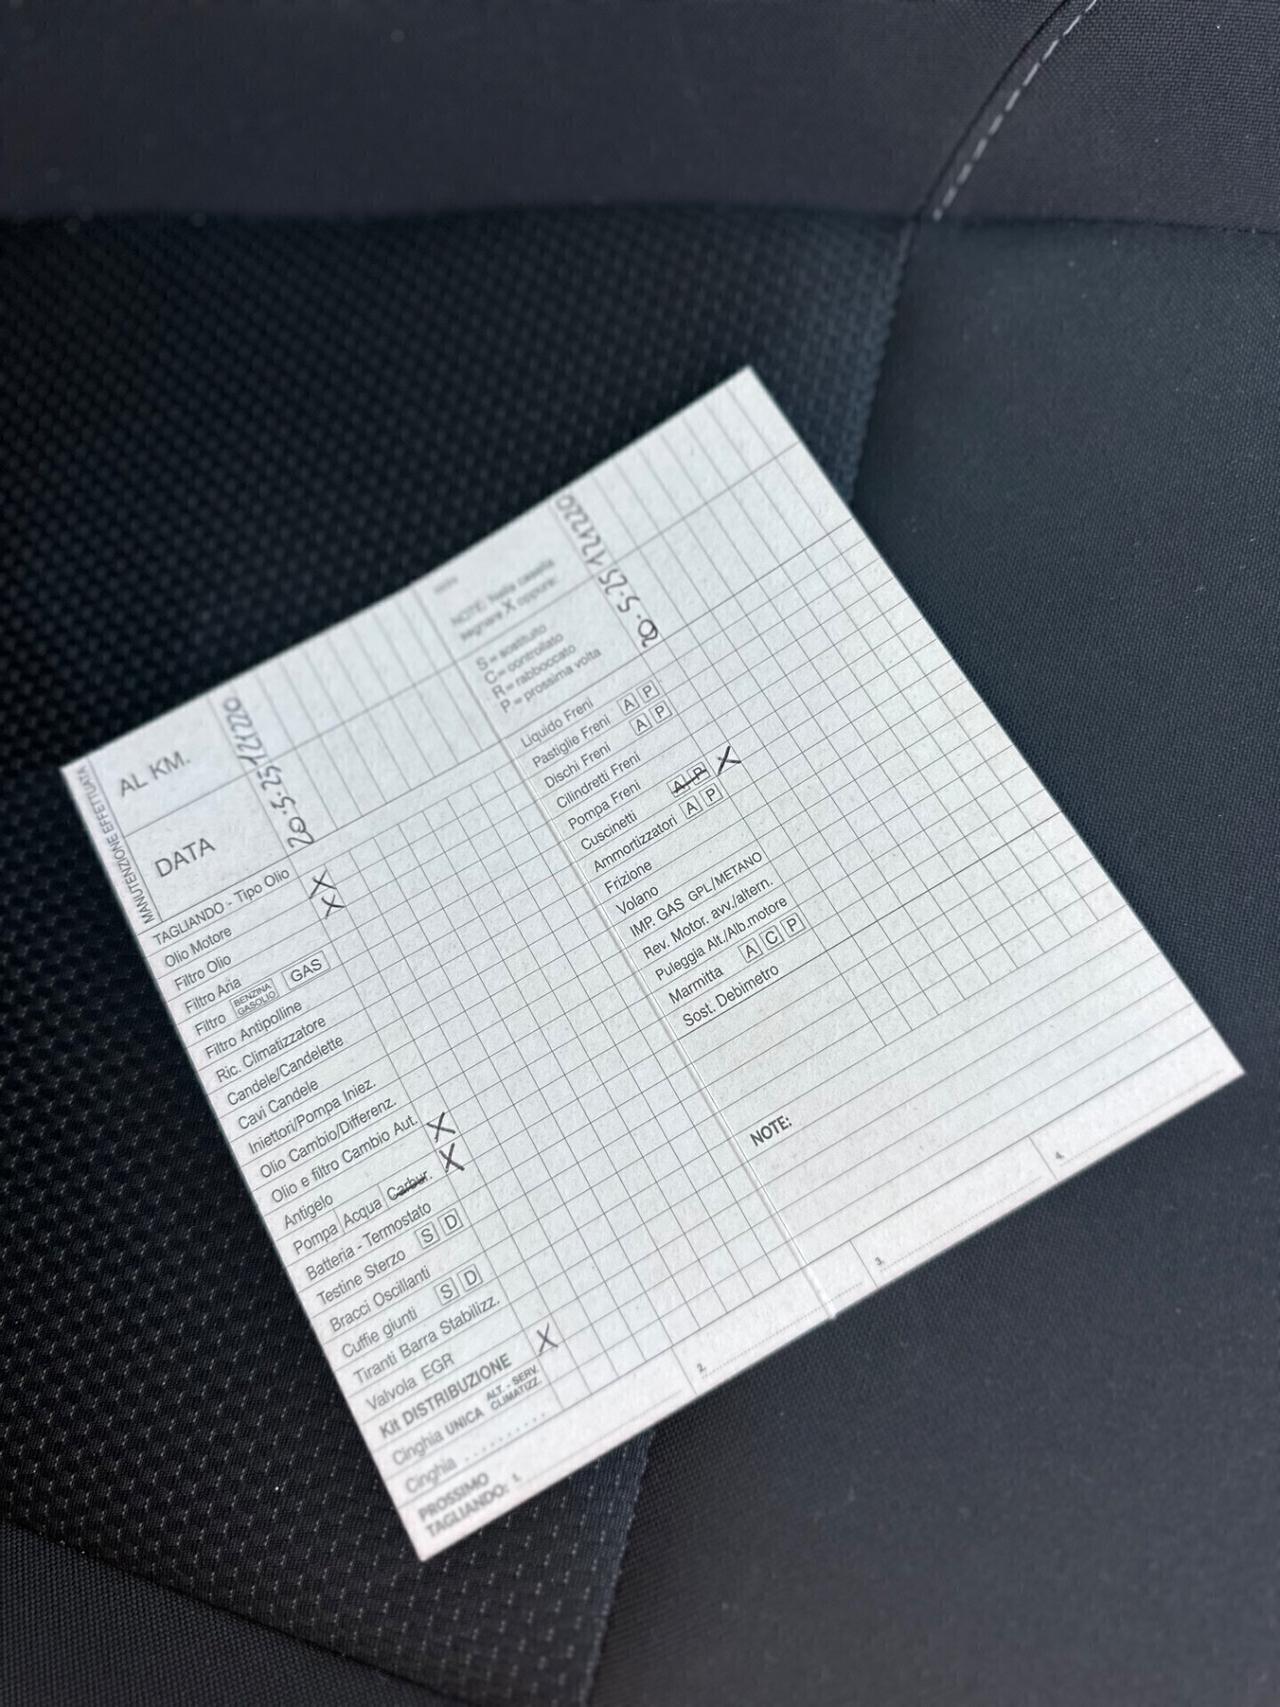 MANUTENZIONE EFFETTUATA
AL KM.
121220
DATA
20.5.25
TAGLIANDO - Tipo Olio
Olio Motore X
Filtro Olio X
Filtro Aria
Filtro BENZINA GASOLIO GAS
Filtro Antipolline
Ric. Climatizzatore
Candele/Candelette
Cavi Candele
Iniettori/Pompa Iniez.
Olio Cambio/Differenz.
Olio e filtro Cambio Aut.
Antigelo X
Pompa Acqua Carbur. X
Batteria - Termostato
Testine Sterzo S D
Bracci Oscillanti
Cuffie giunti S D
Tiranti Barra Stabilizz.
Valvola EGR
Kit DISTRIBUZIONE X
Cinghia UNICA ALT. - SERV. CLIMATIZZ.
Cinghia ..........
PROSSIMO
TAGLIANDO: 1.
2.
NOTE: Nella casella
segnare X oppure:
S = sostituito
C = controllato
R = rabboccato
P = prossima volta
121220
20.5.25
Liquido Freni
Pastiglie Freni A P
Dischi Freni A P
Cilindretti Freni
Pompa Freni
Cuscinetti A P X
Ammortizzatori A P
Frizione
Volano
IMP. GAS GPL/METANO
Rev. Motor. avv./altern.
Puleggia Alt./Alb.motore
Marmitta A C P
Sost. Debimetro
NOTE:
3.
4.